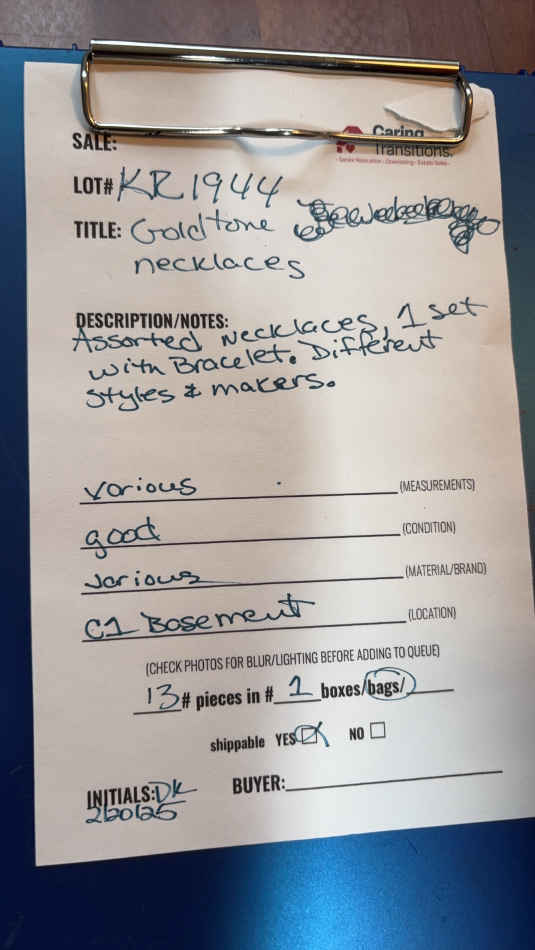 Caring
Transitions.
- Senior Relocation - Downsizing - Estate Sales -
SALE:
LOT# KR1944
TITLE: Goldtone
necklaces
DESCRIPTION/NOTES:
Assorted Necklaces, 1 set
with Bracelet. Different
styles & makers.
various (MEASUREMENTS)
good (CONDITION)
various (MATERIAL/BRAND)
C1 Basement (LOCATION)
(CHECK PHOTOS FOR BLUR/LIGHTING BEFORE ADDING TO QUEUE)
13 # pieces in # 1 boxes/bags/
shippable YES NO
INITIALS: DK BUYER: